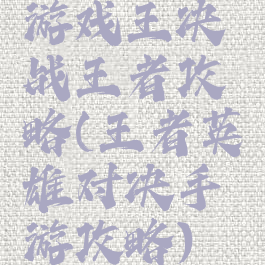 游戏王决
战王者攻
略(王者英
雄对决手
游攻略)